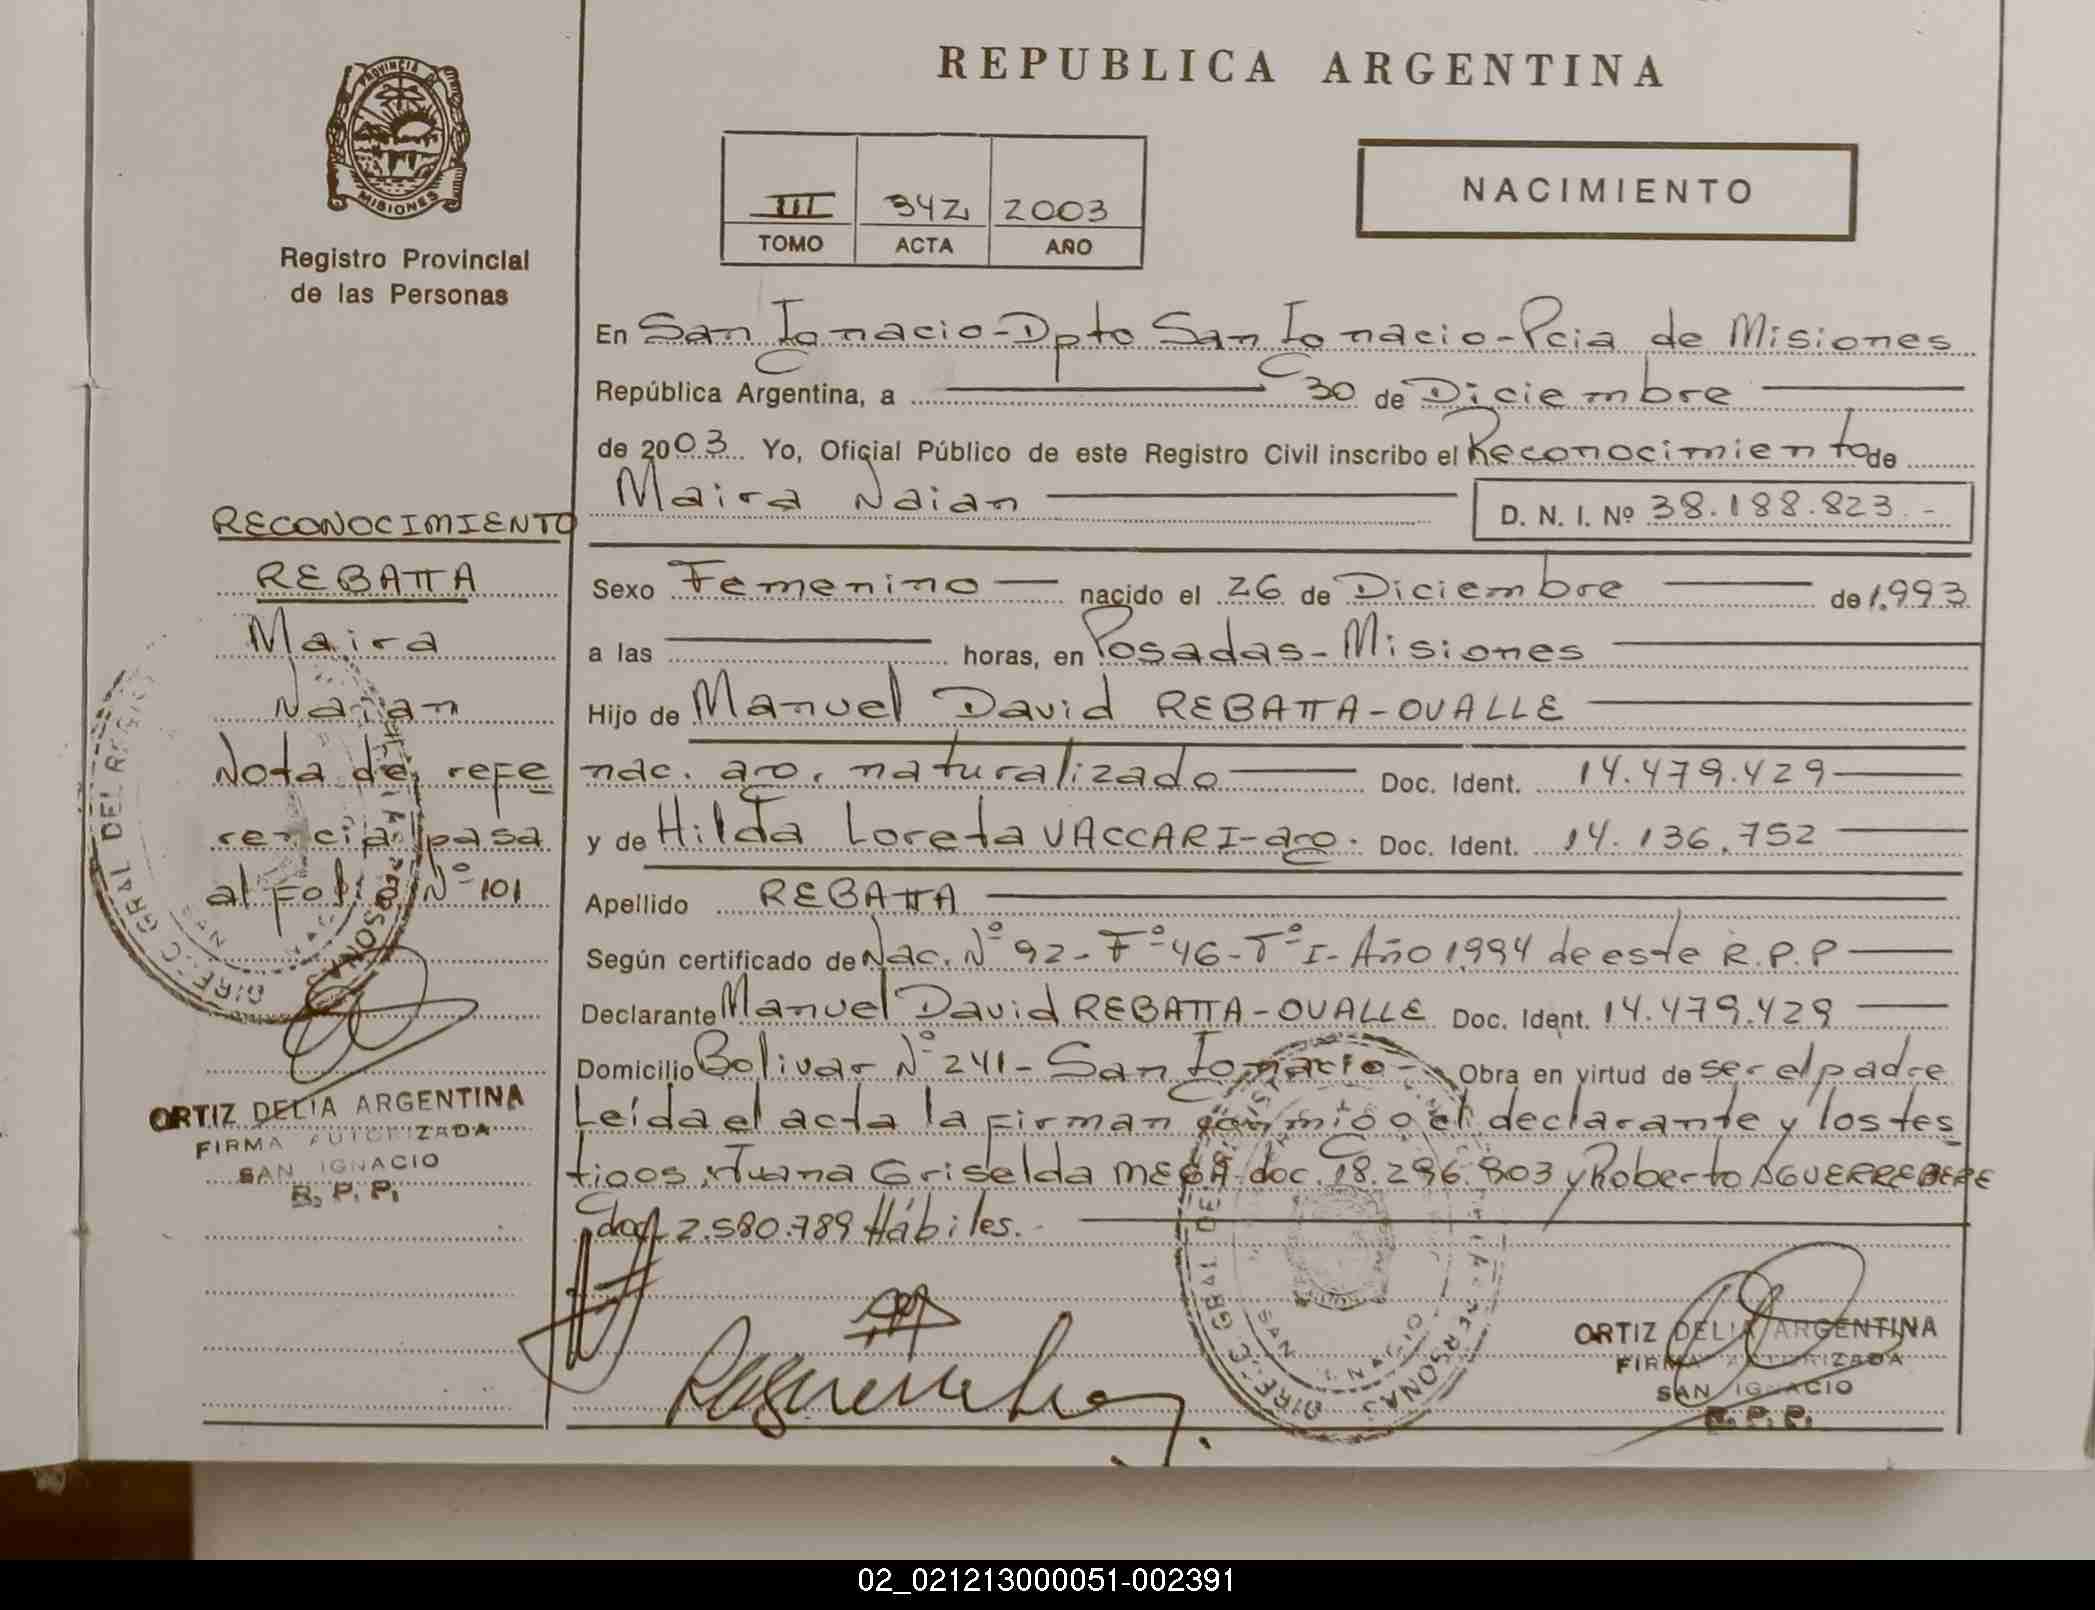 REPUBLICA ARGENTINA
PROVINCIA DE
MISIONES
Registro Provincial
de las Personas
III 342 2003
TOMO ACTA AÑO
NACIMIENTO
En San Ignacio-Dpto San Ignacio-Pcia de Misiones
República Argentina, a 30 de Diciembre
de 2003 Yo, Oficial Público de este Registro Civil inscribo el Reconocimiento de
Maira Naian
D. N. I. Nº 38.188.823.-
Sexo Femenino nacido el 26 de Diciembre de 1.993
a las horas, en Posadas-Misiones
Hijo de Manuel David REBATTA-OVALLE
nac. arg. naturalizado Doc. Ident. 14.479.429
y de Hilda Loreta VACCARI-arg. Doc. Ident. 14.136.752
Apellido REBATTA
Según certificado de Nac. Nº 92-Fº 46-Tº I-Año 1.994 de este R.P.P
Declarante Manuel David REBATTA-OVALLE Doc. Ident. 14.479.429
Domicilio Bolivar Nº 241-San Ignacio- Obra en virtud de ser el padre
Leída el acta la firman conmigo el declarante y los tes
tigos: Juana Griselda MEZA doc. 18.296.803 y Roberto AGUERREBERE
doc. 2.580.789 Hábiles.-
RECONOCIMIENTO
REBATTA
Maira
Naian
Nota de refe
rencia pasa
al folio Nº 101
ORTIZ DELIA ARGENTINA
FIRMA AUTORIZADA
SAN IGNACIO
R. P. P.
ORTIZ DELIA ARGENTINA
FIRMA AUTORIZADA
SAN IGNACIO
R. P. P.
02_021213000051-002391